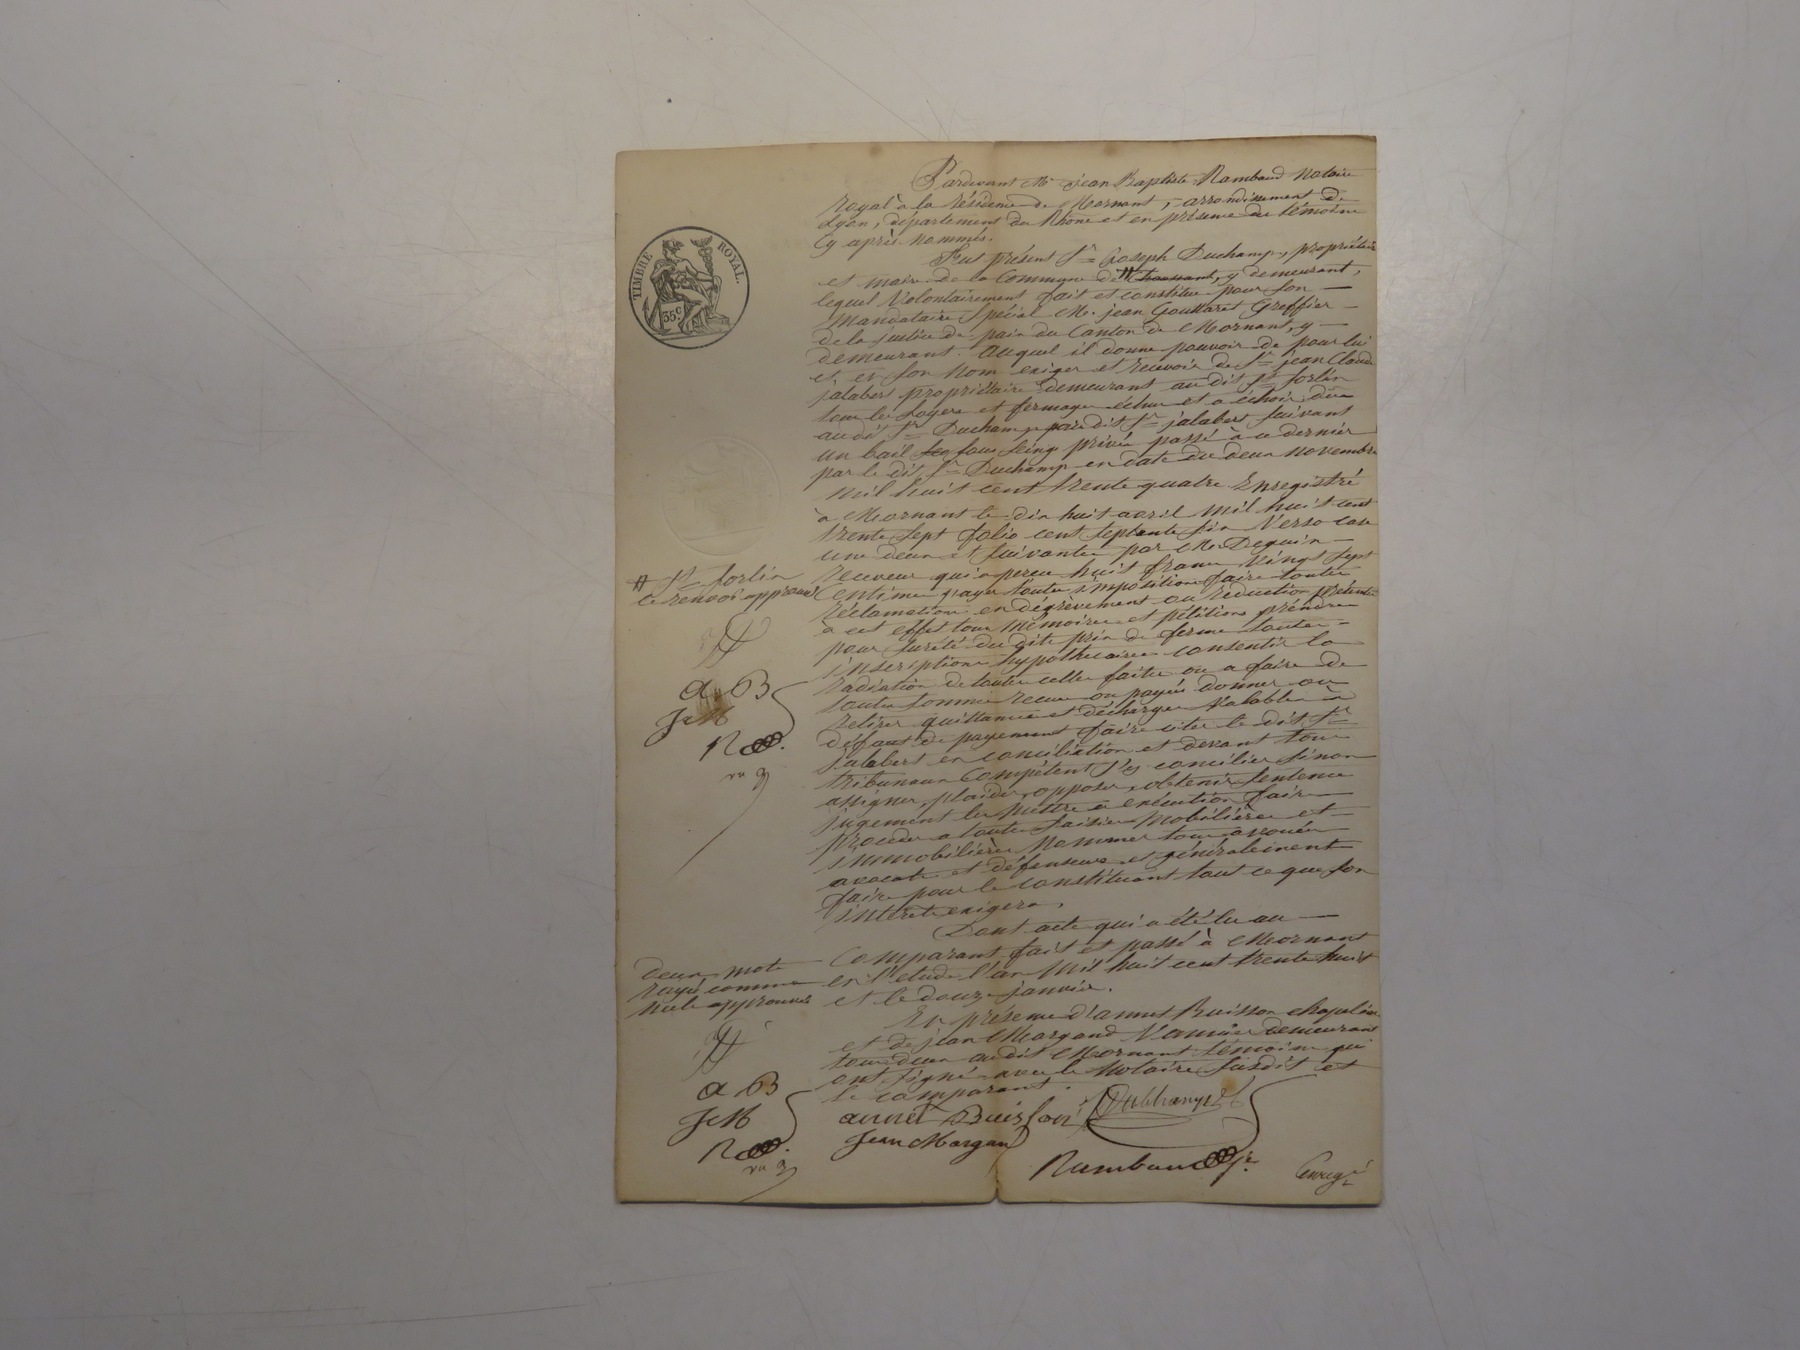 Pardevant Me jean Baptiste Rambaud Notaire
Royal à la résidence de Mornant, arrondissement de
Lyon, département du Rhône et en présence des témoins
Cy après nommés.
TIMBRE ROYAL.
35c
Fut présent Sr Joseph Duchamp, propriétaire
et maire de la Commune de # y demeurant,
lequel Volontairement fait et constitue pour Son
Mandataire Spécial Mr. jean Gouttaret Greffier
de la justice de paix du Canton de Mornant, y
demeurant. auquel il donne pouvoir de pour lui
et en Son Nom exiger et recevoir de Sr jean Claude
jalabert propriétaire demeurant au dit St Sorlin
tous les loyers et fermages échus et a échoir dûs
au dit Sr Duchamp par le dit Sr jalabert Suivant
un bail sous Seings privés passé à ce dernier
par le dit Sr Duchamp en date du deux novembre
mil huit cent trente quatre Enregistré
à Mornant le dix huit avril mil huit cent
trente Sept folio cent Septante Six Verso case
une deux et Suivantes par Mr Dequin
receveur qui a perçu huit francs Vingt Sept
# St Sorlin
ce renvoi approuvé
Centimes payer toutes impositions faire toutes
réclamations en dégrèvement ou réduction présenter
à cet effet tous mémoires et pétitions prendre
pour Sureté du dite prix de ferme toutes
inscriptions hypothécaires consentir la
radiation de toutes celles faites ou a faire de
toutes Sommes reçues ou payées donner ou
retirer quittances et décharges Valables à
défaut de payement faire citer le dit Sr
jalabert en conciliation et devant tous
tribunaux Compétent S'y concilier Sinon
a B
JcM
R
assigner, plaider, opposer, obtenir Sentence
jugement les mettre à exécution faire
procéder a toutes Saisies Mobilières et
immobilières Nommer tous avoués
avocats et défenseurs et généralement
faire pour le constituant tout ce que Son
intérêt exigera.
Dont acte qui a été lu au
Comparant fait et passé à Mornant
en l'étude l'an Mil huit cent trente huit
et le douze janvier.
deux mots
rayés comme
nuls approuvés
En présence d'annet Buisson chapelier
et de jean Margand Vannier demeurant
tous deux audit Mornant témoins qui
ont Signé avec le Notaire Susdit et
le comparant.
a B
JcM
R
annet Buisson
Duchamp
Jean Margan
Rambaud